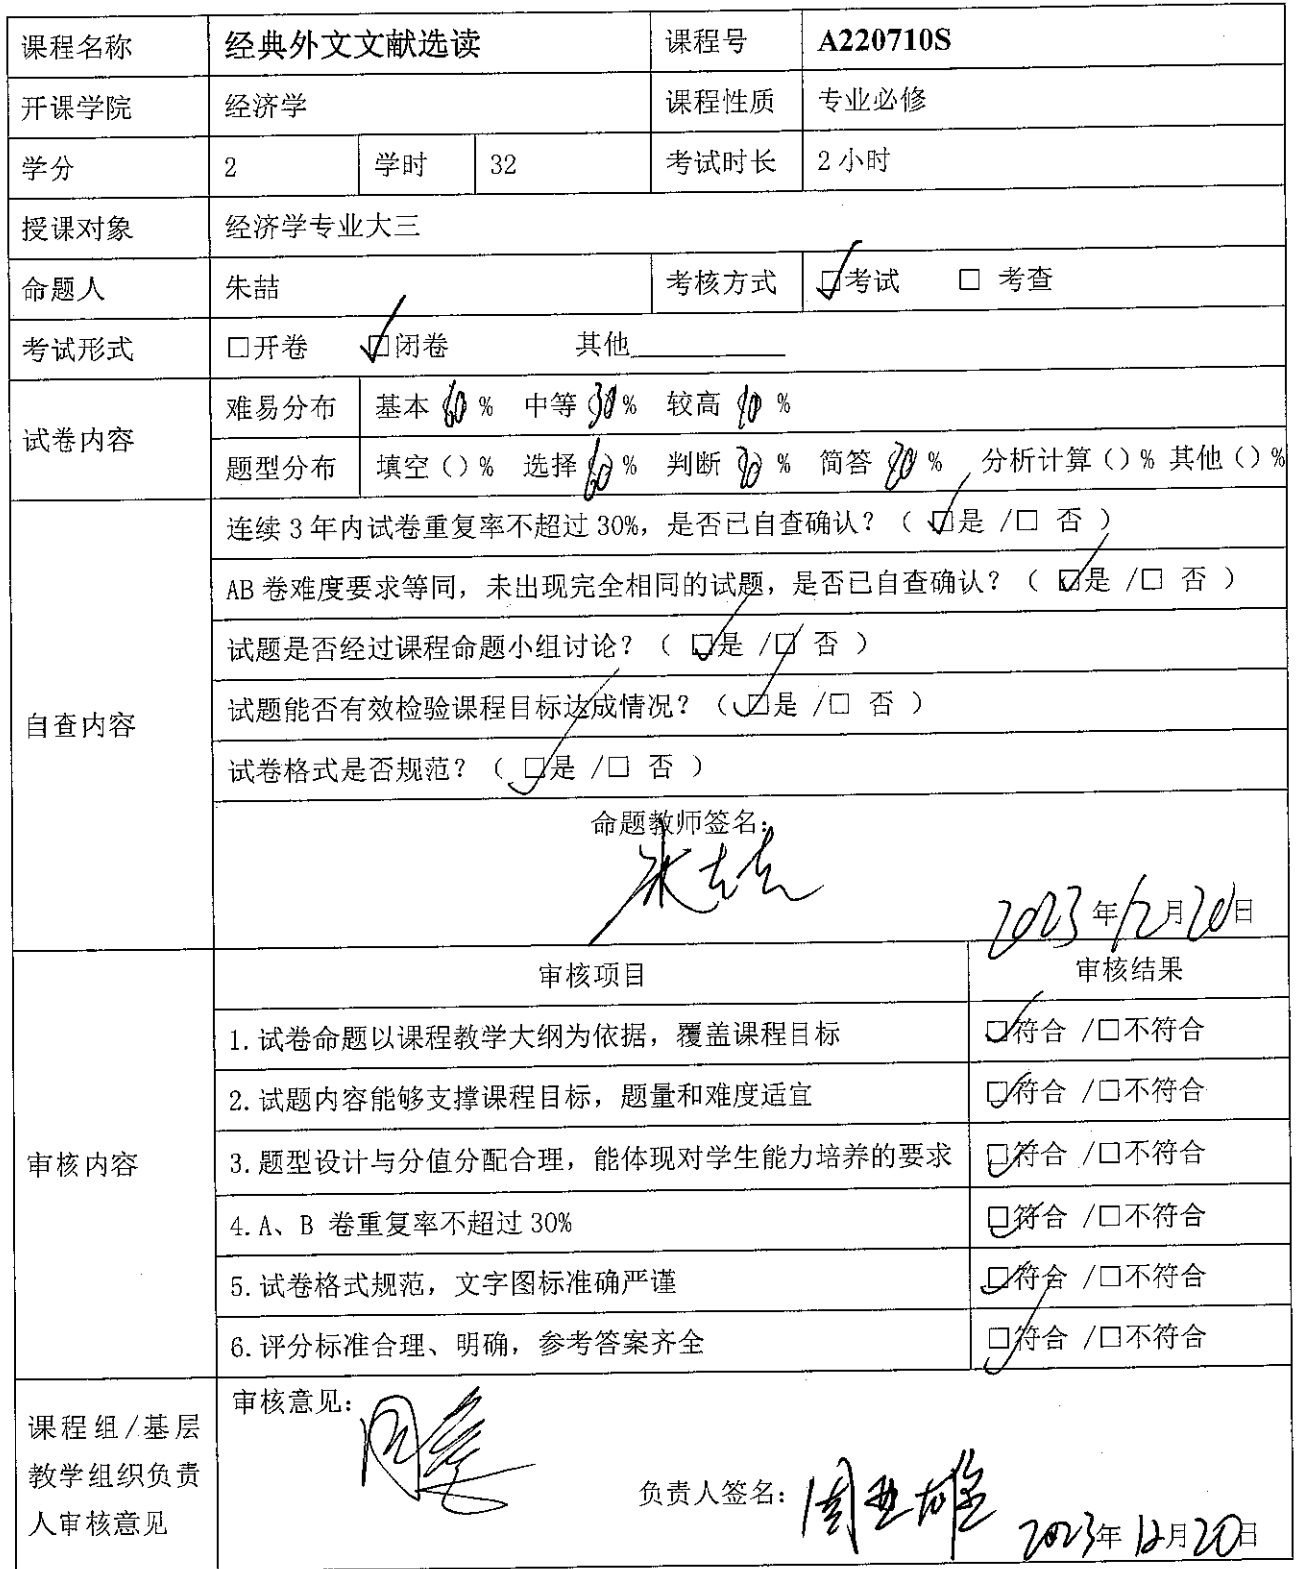 课程名称 经典外文文献选读 课程号 A220710S
开课学院 经济学 课程性质 专业必修
学分 2 学时 32 考试时长 2小时
授课对象 经济学专业大三
命题人 朱喆 考核方式 ☑考试 □ 考查
考试形式 □开卷 ☑闭卷 其他
试卷内容 难易分布 基本(60)% 中等(30)% 较高(10)%
题型分布 填空()% 选择(60)% 判断(20)% 简答(20)% 分析计算()% 其他()%
自查内容
连续3年内试卷重复率不超过30%，是否已自查确认？（ ☑是 /□ 否 ）
AB卷难度要求等同，未出现完全相同的试题，是否已自查确认？（ ☑是 /□ 否 ）
试题是否经过课程命题小组讨论？（ ☑是 /□ 否 ）
试题能否有效检验课程目标达成情况？（ ☑是 /□ 否 ）
试卷格式是否规范？（ ☑是 /□ 否 ）
命题教师签名：
朱喆
2023年12月20日
审核内容
审核项目 审核结果
1.试卷命题以课程教学大纲为依据，覆盖课程目标 ☑符合 /□不符合
2.试题内容能够支撑课程目标，题量和难度适宜 ☑符合 /□不符合
3.题型设计与分值分配合理，能体现对学生能力培养的要求 ☑符合 /□不符合
4.A、B 卷重复率不超过30% ☑符合 /□不符合
5.试卷格式规范，文字图标准确严谨 ☑符合 /□不符合
6.评分标准合理、明确，参考答案齐全 ☑符合 /□不符合
课程组/基层
教学组织负责
人审核意见
审核意见：
同意
负责人签名：周亚雄
2023年12月20日